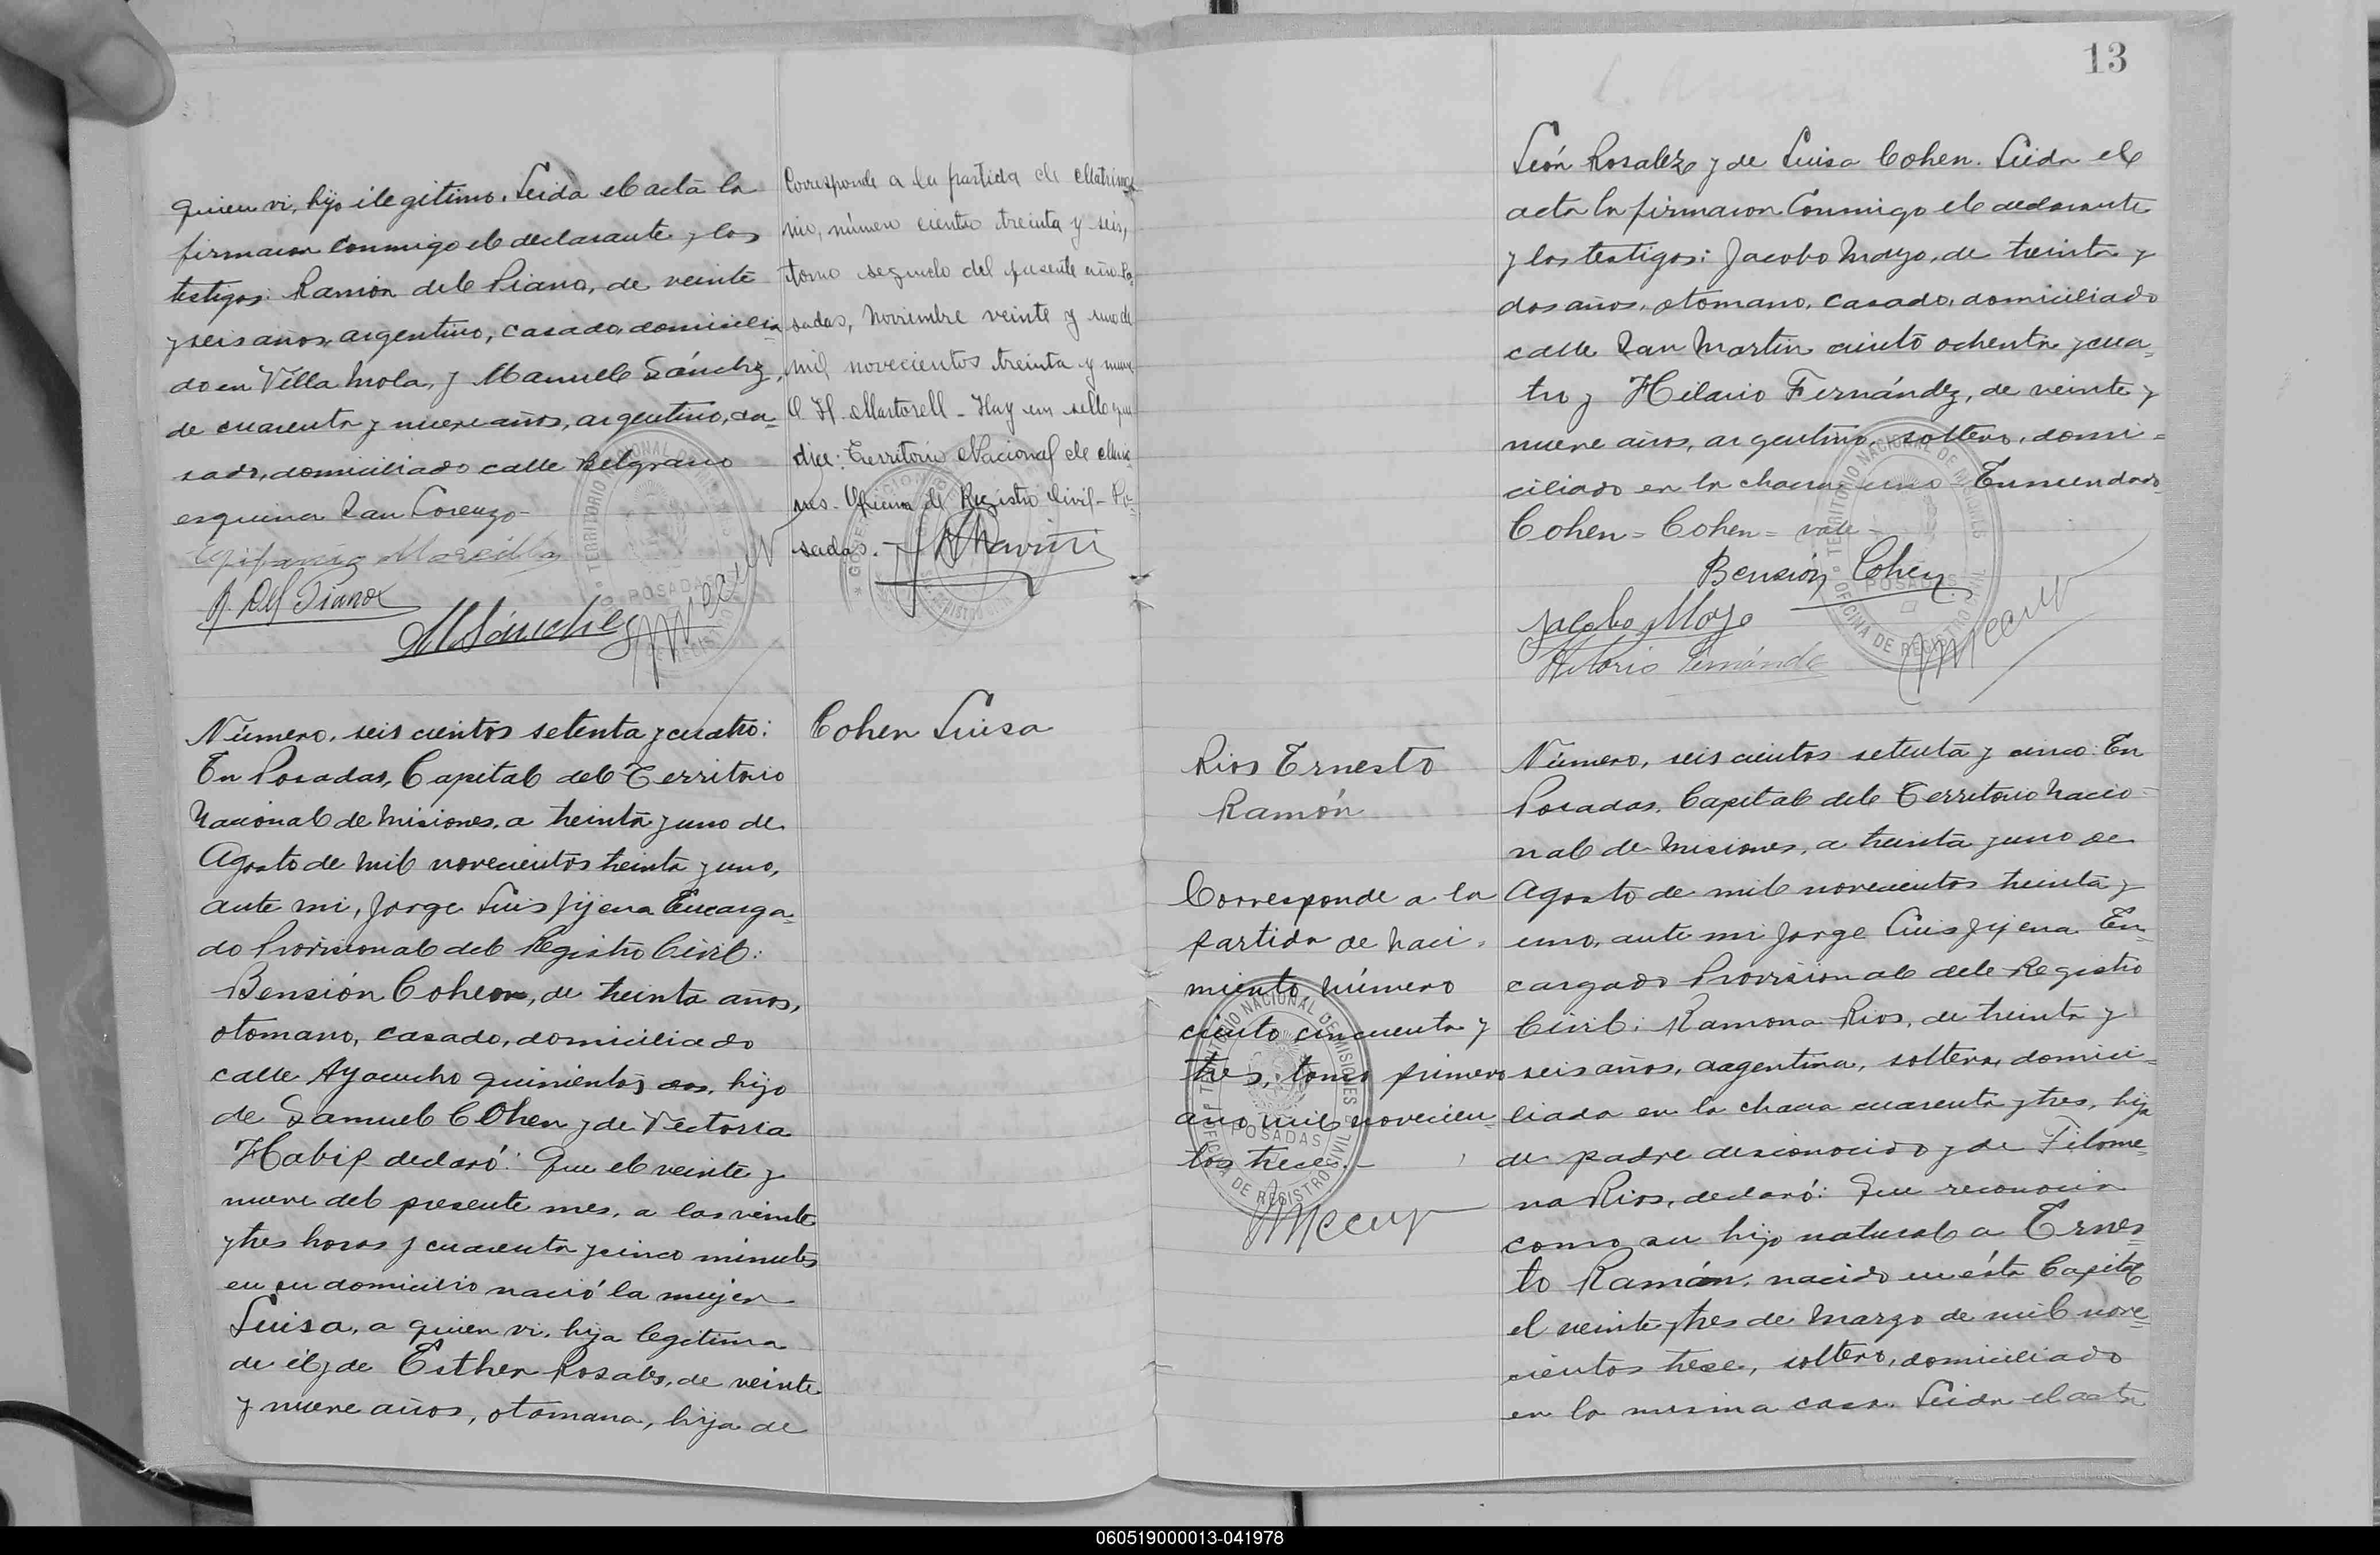 quien vi, hijo ilegitimo. Leida el acta la
firmaron conmigo el declarante y los
testigos: Ramón del Piano, de veinte
y seis años, argentino, casado, domicilia-
do en Villa Mola, y Manuel Sánchez,
de cuarenta y nueve años, argentino, ca-
sado, domiciliado calle Belgrano
esquina San Lorenzo-
R. Del Piano
M Sánchez
Corresponde a la partida de Matrimo-
nio, número ciento treinta y seis,
tomo segundo del presente año. Po-
sadas, Noviembre veinte y uno de
mil novecientos treinta y nueve
C. H. Martorell - Hay un sello que
dice: Territorio Nacional de Misio-
nes. Oficina de Registro Civil - Po-
sadas. -
Número, seis cientos setenta y cuatro:
En Posadas, Capital del Territorio
Nacional de Misiones, a treinta y uno de
Agosto de mil novecientos treinta y uno,
ante mi, Jorge Luis Jijena Encarga-
do Provisional del Registro Civil:
Bensión Cohen, de treinta años,
otomano, casado, domiciliado
calle Ayacucho quinientos dos, hijo
de Samuel Cohen y de Victoria
Habif declaró: Que el veinte y
nueve del presente mes, a las veinte
y tres horas y cuarenta y cinco minutos
en su domicilio nació la mujer
Luisa, a quien vi, hija legitima
de él y de Esther Rosales, de veinte
y nueve años, otomana, hija de
Cohen Luisa
13
León Rosales y de Luisa Cohen. Leida el
acta la firmaron conmigo el declarante
y los testigos: Jacobo Mayo, de treinta y
dos años, otomano, casado, domiciliado
calle San Martin ciento ochenta y cua-
tro y Hilario Fernández, de veinte y
nueve años, argentino, soltero, domi-
ciliado en la chacra uno Enmendado
Cohen = Cohen = vale -
Bensión Cohen
Jacobo Mayo
Hilario Fernández
Rios Ernesto
Ramón
Corresponde a la
partida de naci-
miento número
ciento cincuenta y
tres, tomo primero
año mil novecien-
tos trece. -
Número, seis cientos setenta y cinco: En
Posadas, Capital del Territorio Nacio-
nal de Misiones, a treinta y uno de
Agosto de mil novecientos treinta y
uno, ante mi Jorge Luis Jijena En-
cargado Provisional del Registro
Civil: Ramona Rios, de treinta y
seis años, argentina, soltera, domici-
liada en la chacra cuarenta y tres, hija
de padre desconocido y de Filome-
na Rios, declaró: Que reconocia
como su hijo natural a Ernes-
to Ramón, nacido en ésta Capital
el veinte y tres de Marzo de mil nove-
cientos trece, soltero, domiciliado
en la misma casa. Leida el acta
TERRITORIO NACIONAL DE MISIONES
OFICINA DE REGISTRO CIVIL
POSADAS
060519000013-041978